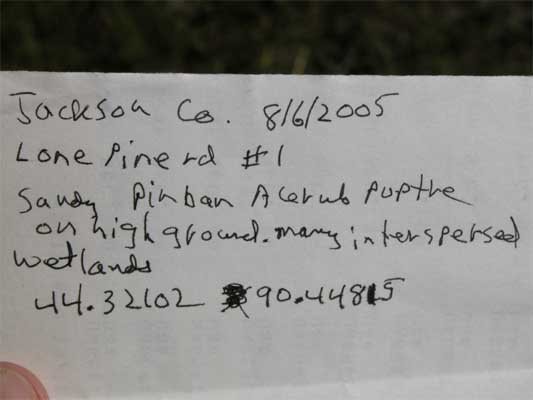 Jackson Co. 8/6/2005
Lone Pine rd #1
Sandy Pinban Acerub Poptre
on high ground. many interspersed
wetlands
44.32102 90.44815